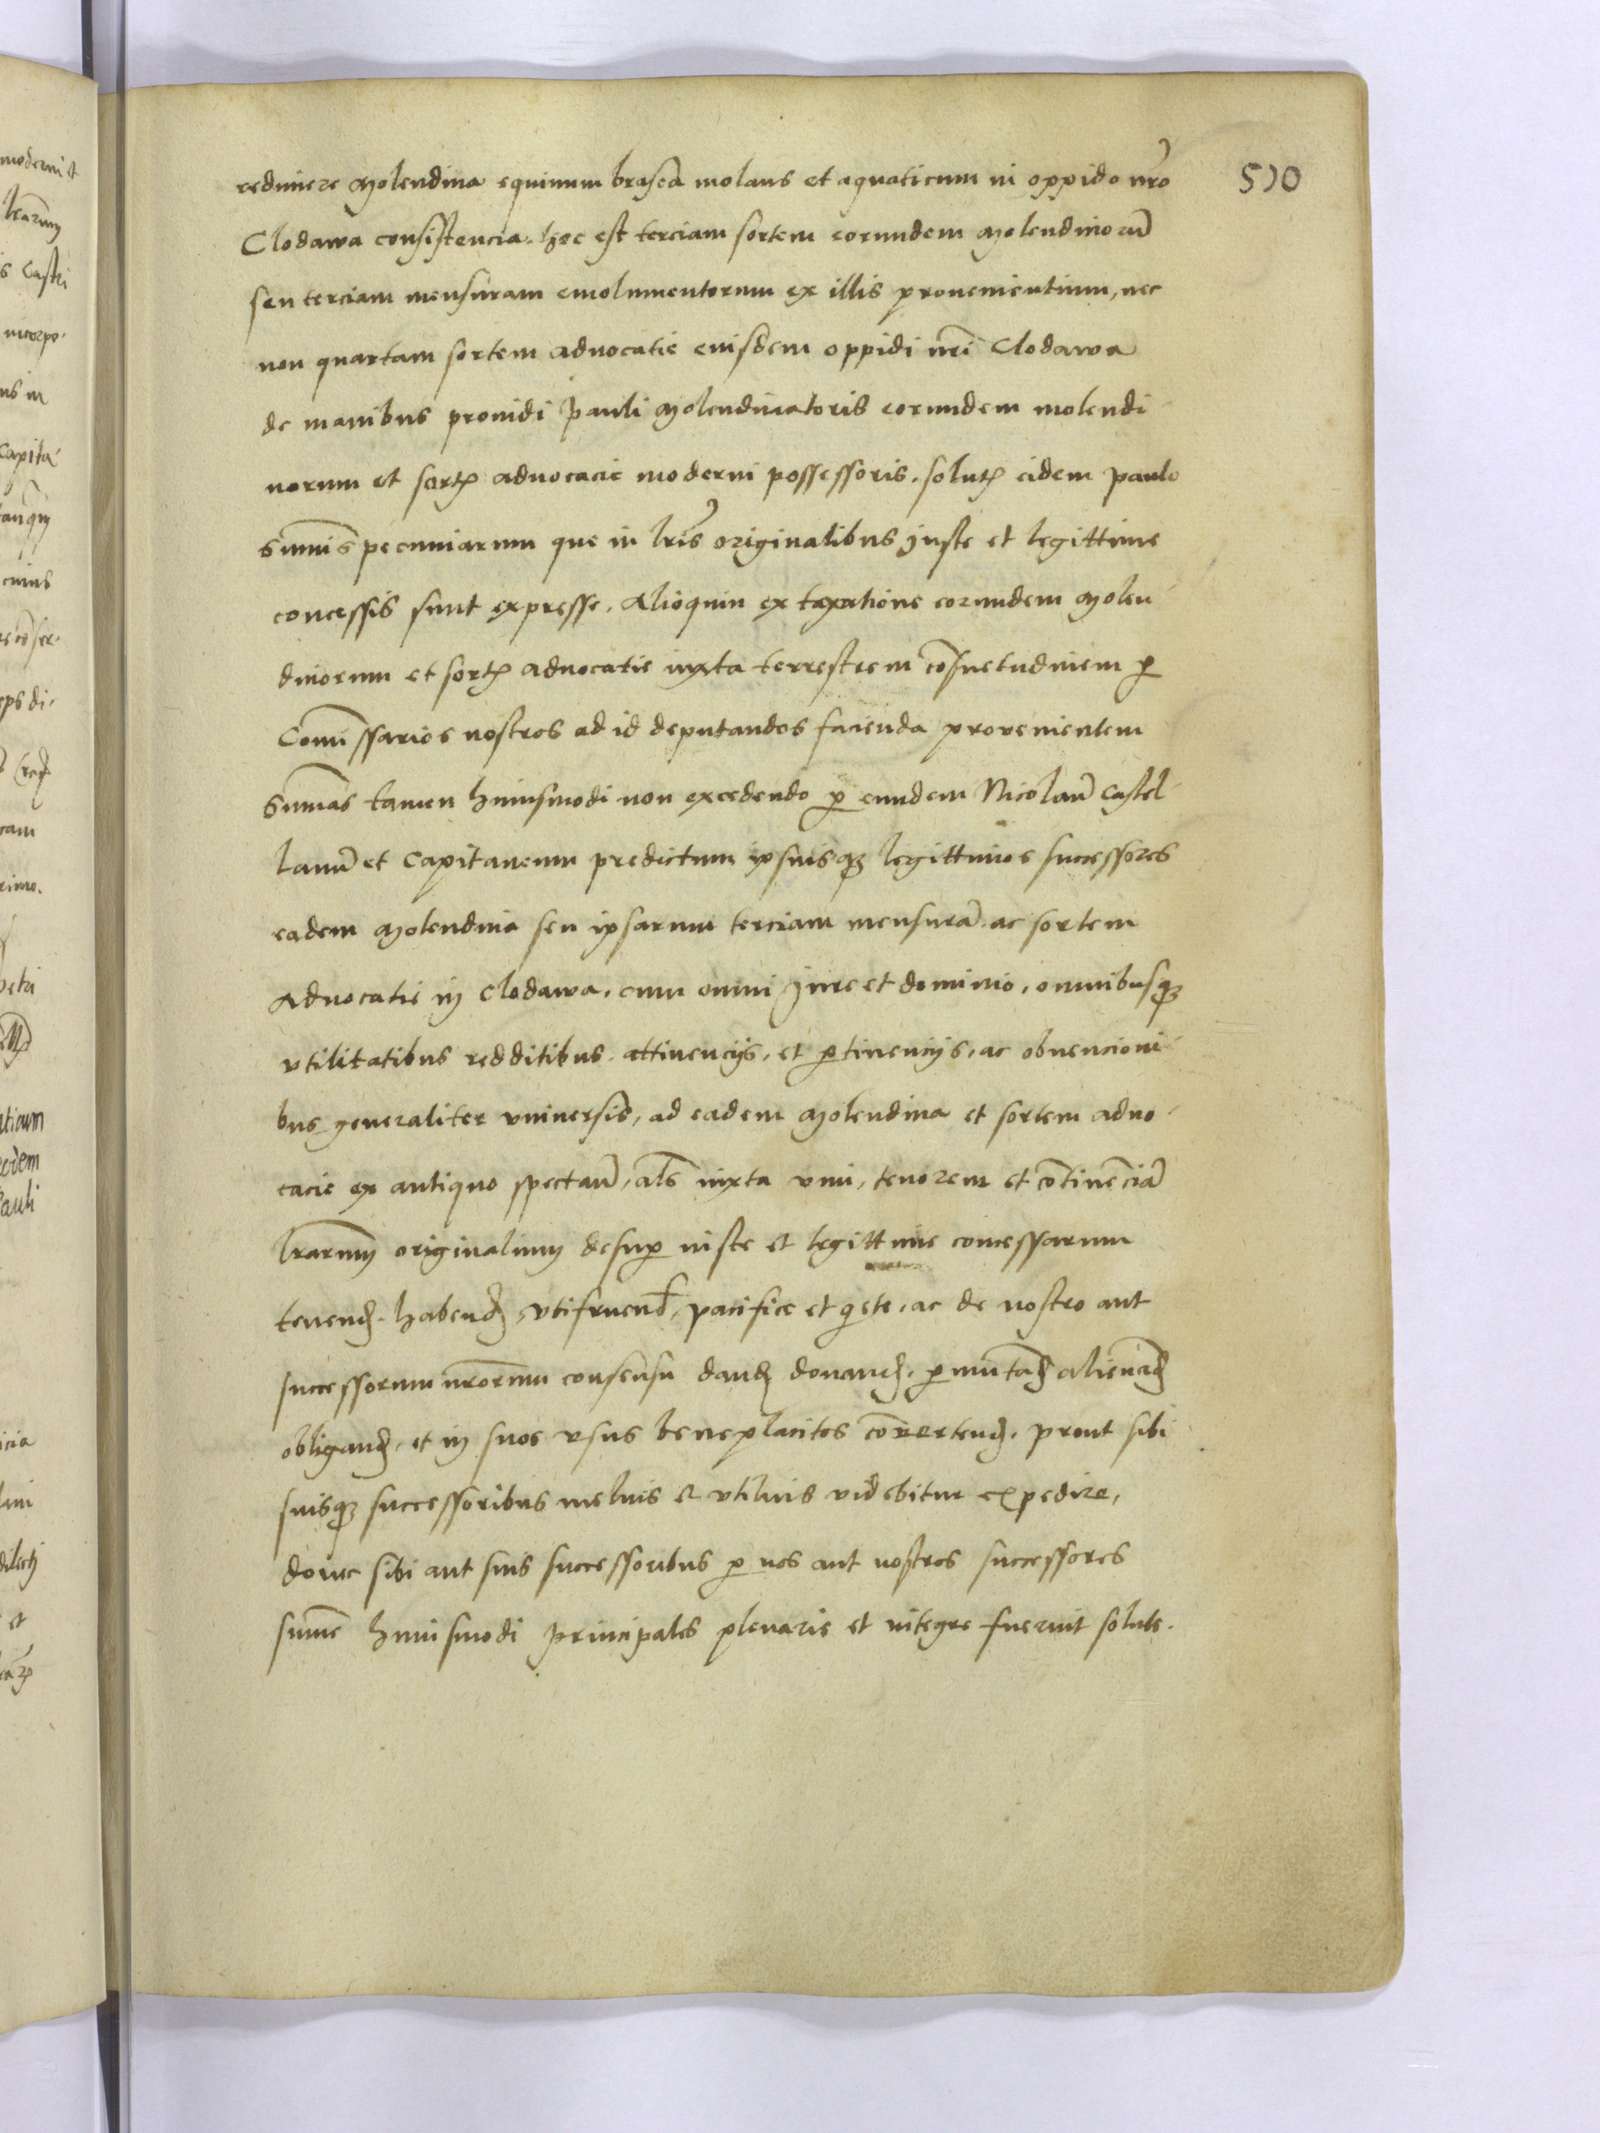 510
redimere Molendina equinum brasea molans et aquaticum in oppido nr̃o
Clodawa consistencia. hoc est terciam sortem eorundem Molendinorũ
seu terciam mensuram emolumentorum ex illis provenientium, nec
non quartam sortem advocatie eiusdem oppidi nr̃i Clodawa
de manibus providi Pauli Molendinatoris eorundem molendi
norum et sort̨ advocacie moderni possessoris. solut̨ eidem Paulo
sum̃is pecuniarum que in lr̃is originalibus Juste et legittime
concessis sunt expresse. Alioquin ex taxatione eorundem Molen
dinorum et sort̨ advocatie iuxta terrestrem cõsuetudinem ꝑ
Com̃issarios nostros ad id deputandos facienda provenientem
Sum̃as tamen huiusmodi non excedendo ꝑ eundem Nicolaũ Castel
lanũ et Capitaneum predictum ipsiusqꝫ legittimos successores
eadem Molendina seu ipsarum terciam mensurã. ac sortem
Advocatie in Clodawa. cum omni Jure et dominio, omnibusqꝫ
utilitatibus redditibus. attinencijs, et ꝑtinencijs, ac obvencioni
bus generaliter universis, ad eadem Molendina et sortem advo
cacie ex antiquo spectañ, al̃s iuxta vim, tenorem et cõtinẽciã
lr̃arum originalium desuꝑ iuste et legittime concessarum
tenend̨. habend̨, utifruend̨, pacifice et q̃ete, ac de nostro aut
successorum nr̃orum consensu dand̨ donand̨. ꝑmutãd̨ alienãd̨
obligand̨, et in suos usus beneplacitos cõvertend̨. prout sibi
suisqꝫ successoribus melius et utilius videbitur expedire,
donec sibi aut suis successoribus ꝑ nos aut nostros successores
sum̃e huiusmodi principales plenarie et integre fuerint solute.